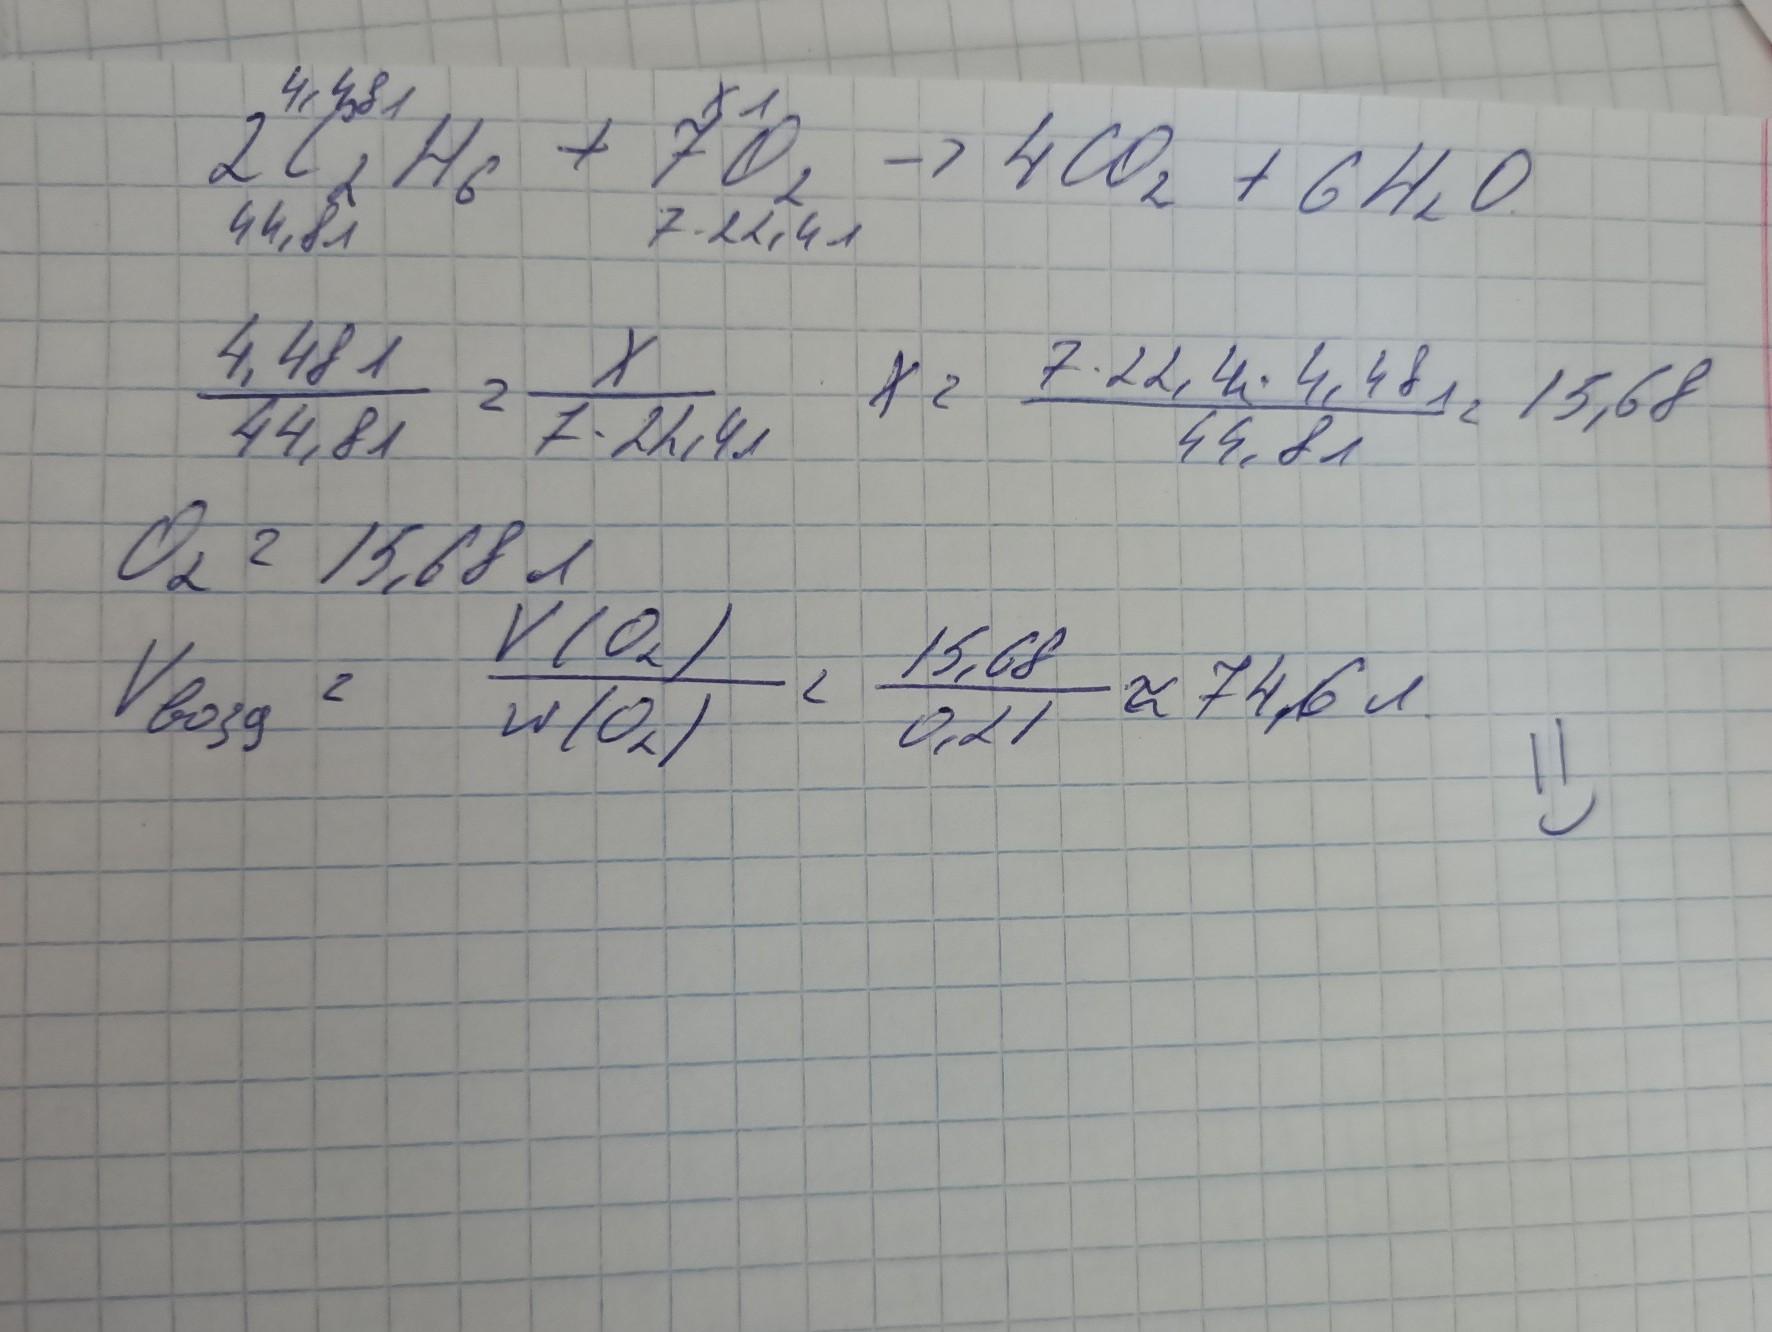 4,48л х л
2C₂H₆ + 7O₂ → 4CO₂ + 6H₂O
44,8л 7·22,4л
4,48л / 44,8л = х / 7·22,4л х = 7·22,4·4,48л / 44,8л = 15,68
O₂ = 15,68 л
Vвозд = V(O₂) / w(O₂) = 15,68 / 0,21 ≈ 74,6 л